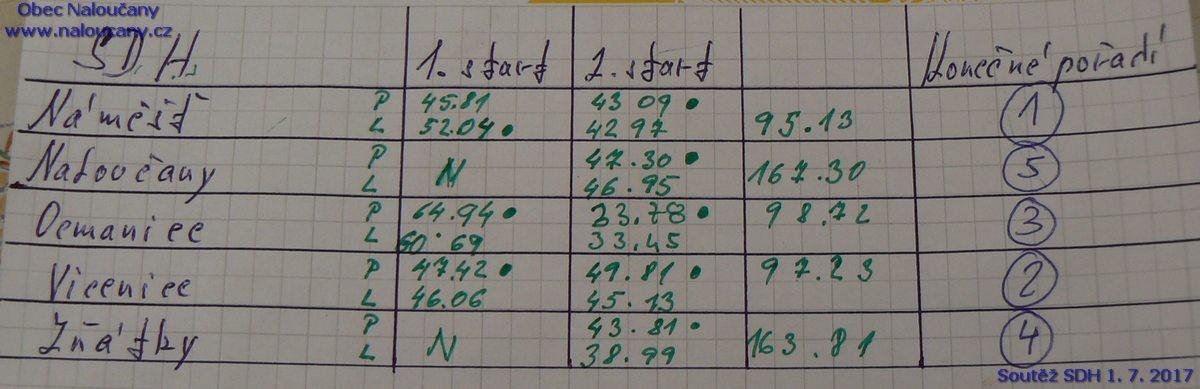 Obec Naloučany
www.naloucany.cz
S.D.H. 1. start 2. start Konečné pořadí
Náměšť P 45.81 43 09 • 95.13 1
L 52.04 • 42 97
Naloučany P N 47.30 • 167.30 5
L 46.95
Ocmanice P 64.94 • 33.78 • 98.72 3
L 60.69 33.45
Vicenice P 47.42 • 49.81 • 97.23 2
L 46.06 45.13
Zňátky P N 43.81 • 163.81 4
L 38.99
Soutěž SDH 1. 7. 2017